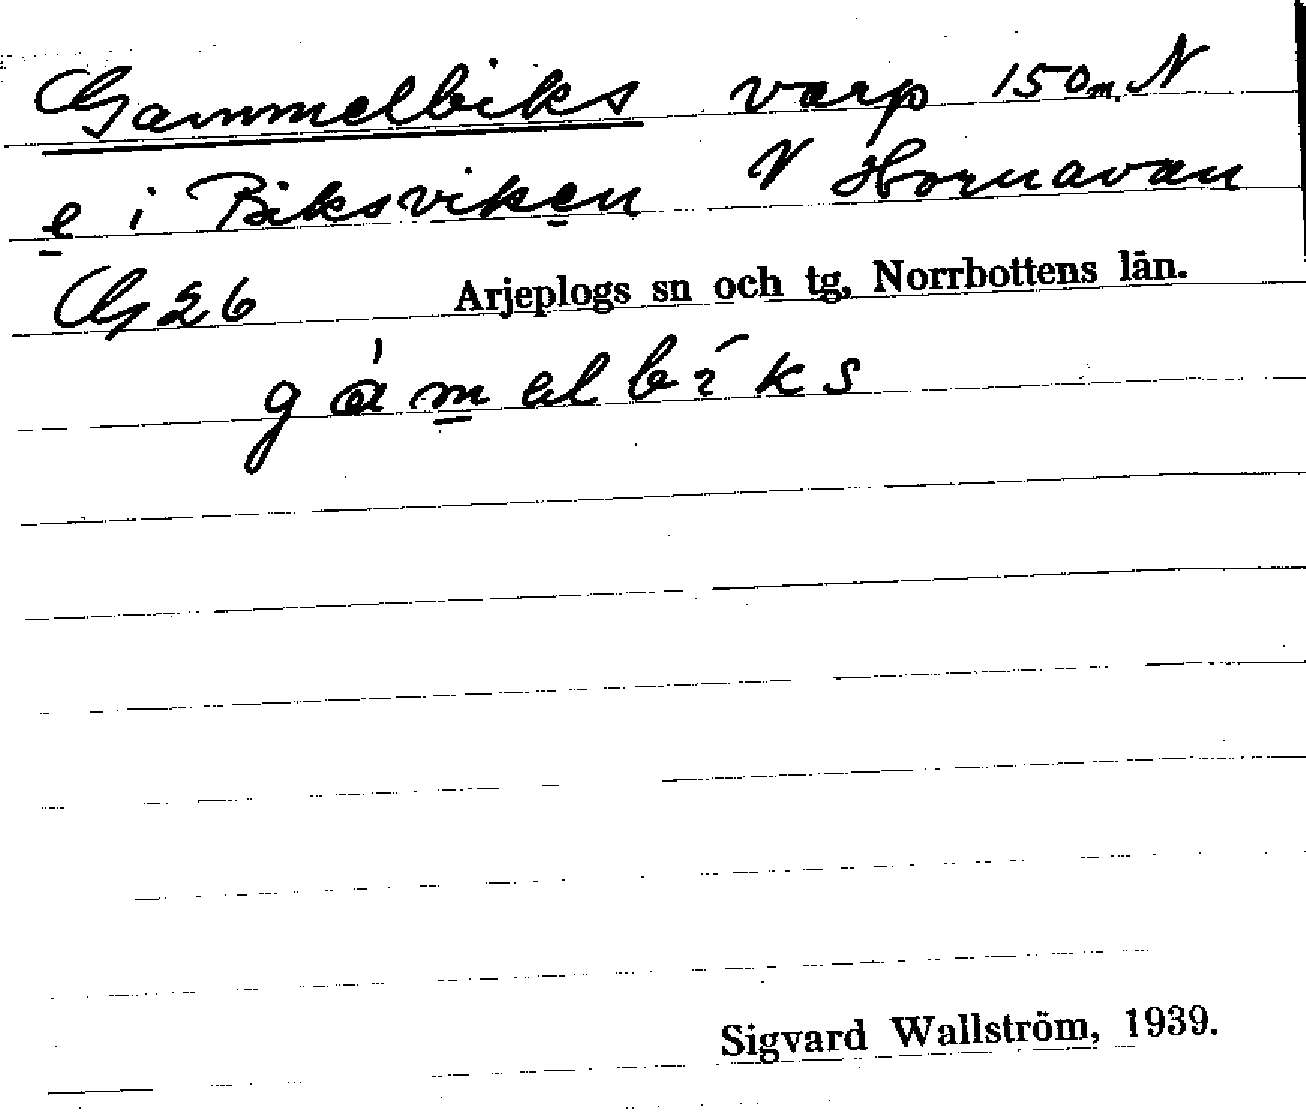 Gammelbiks varp 150 m. N
e i Biksviken N Hornavan
G 26 Arjeplogs sn och tg, Norrbottens län.
gámelbīks
Sigvard Wallström, 1939.